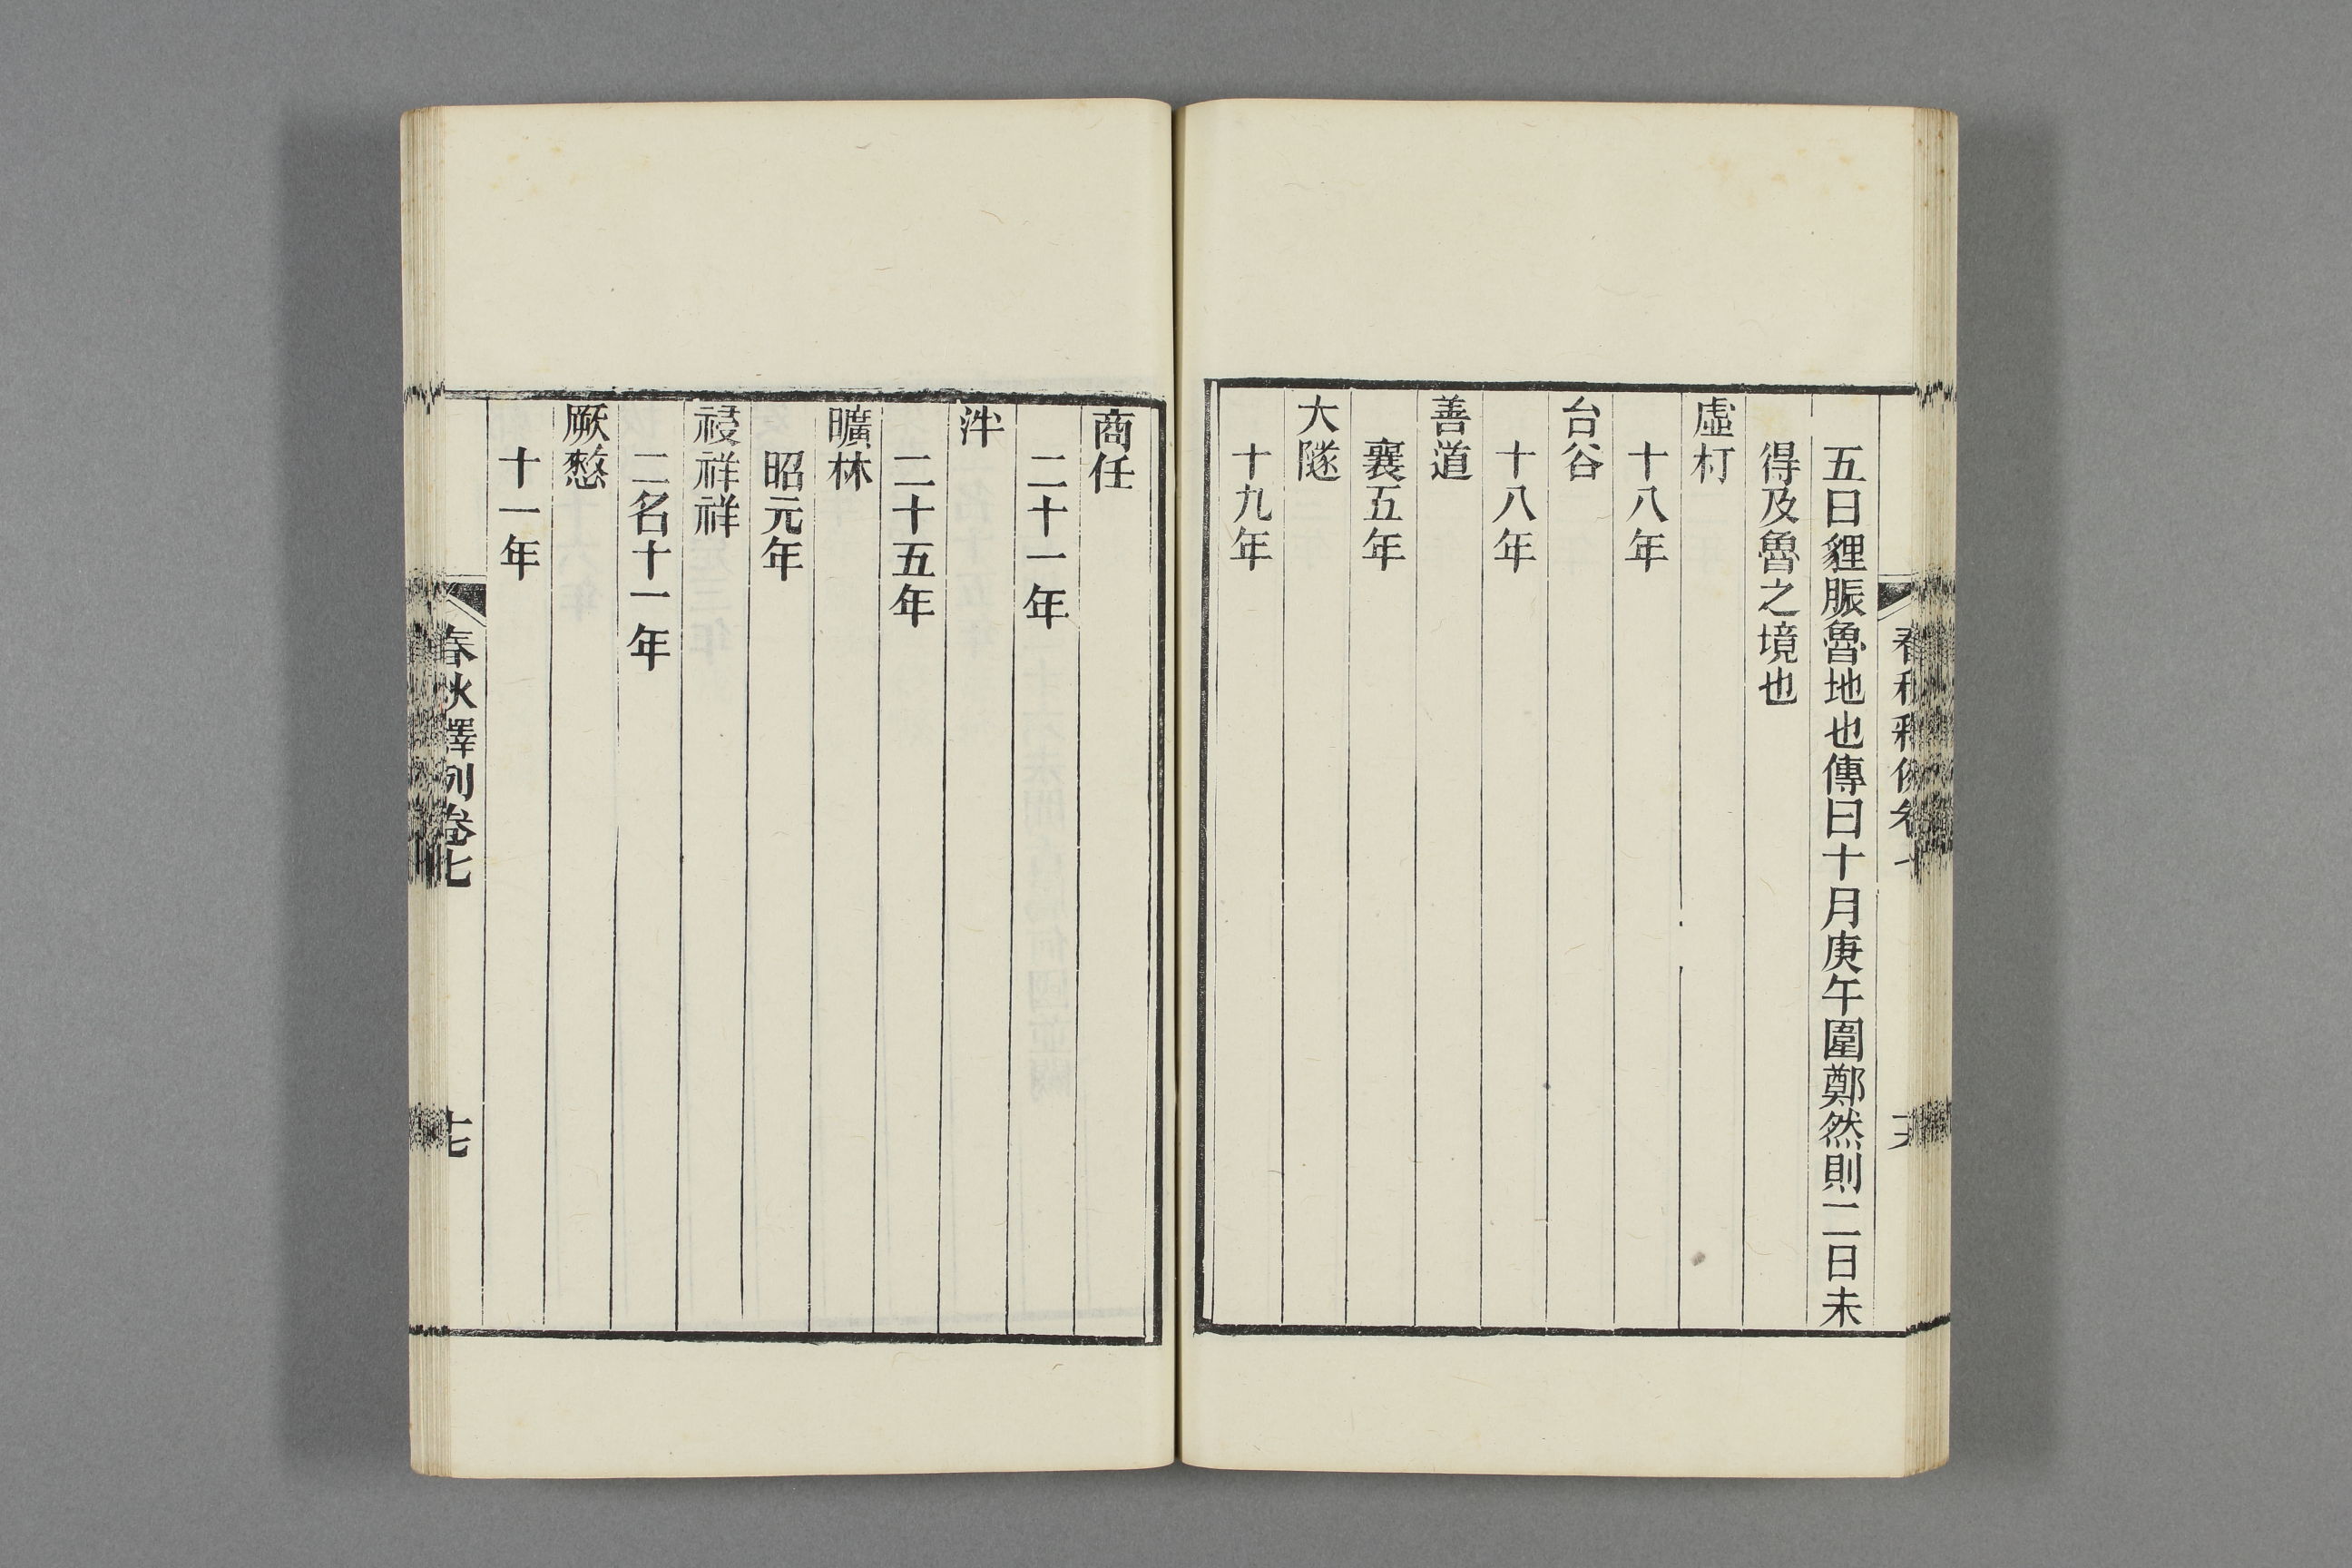 五日貍脤魯地也傳曰十月庚午圍鄭然則二日未
得及魯之境也
虛朾
十八年
台谷
十八年
善道
襄五年
大隧
十九年
商任
二十一年
泮
二十五年
曠林
昭元年
祲祥祥
二名十一年
厥憗
十一年
春秋釋例卷七
十七